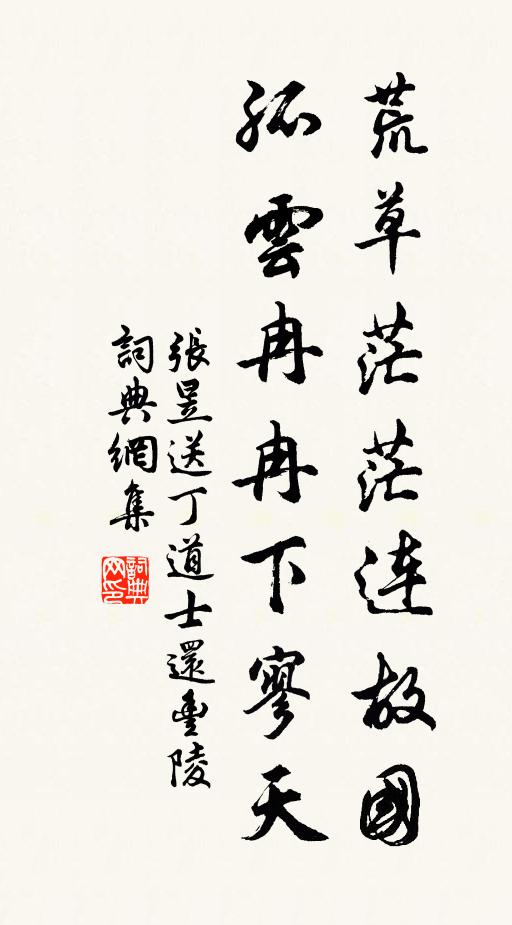 荒草茫茫連故國
孤雲冉冉下寥天
張昱送丁道士還豐陵
詞典網集
詞典网印